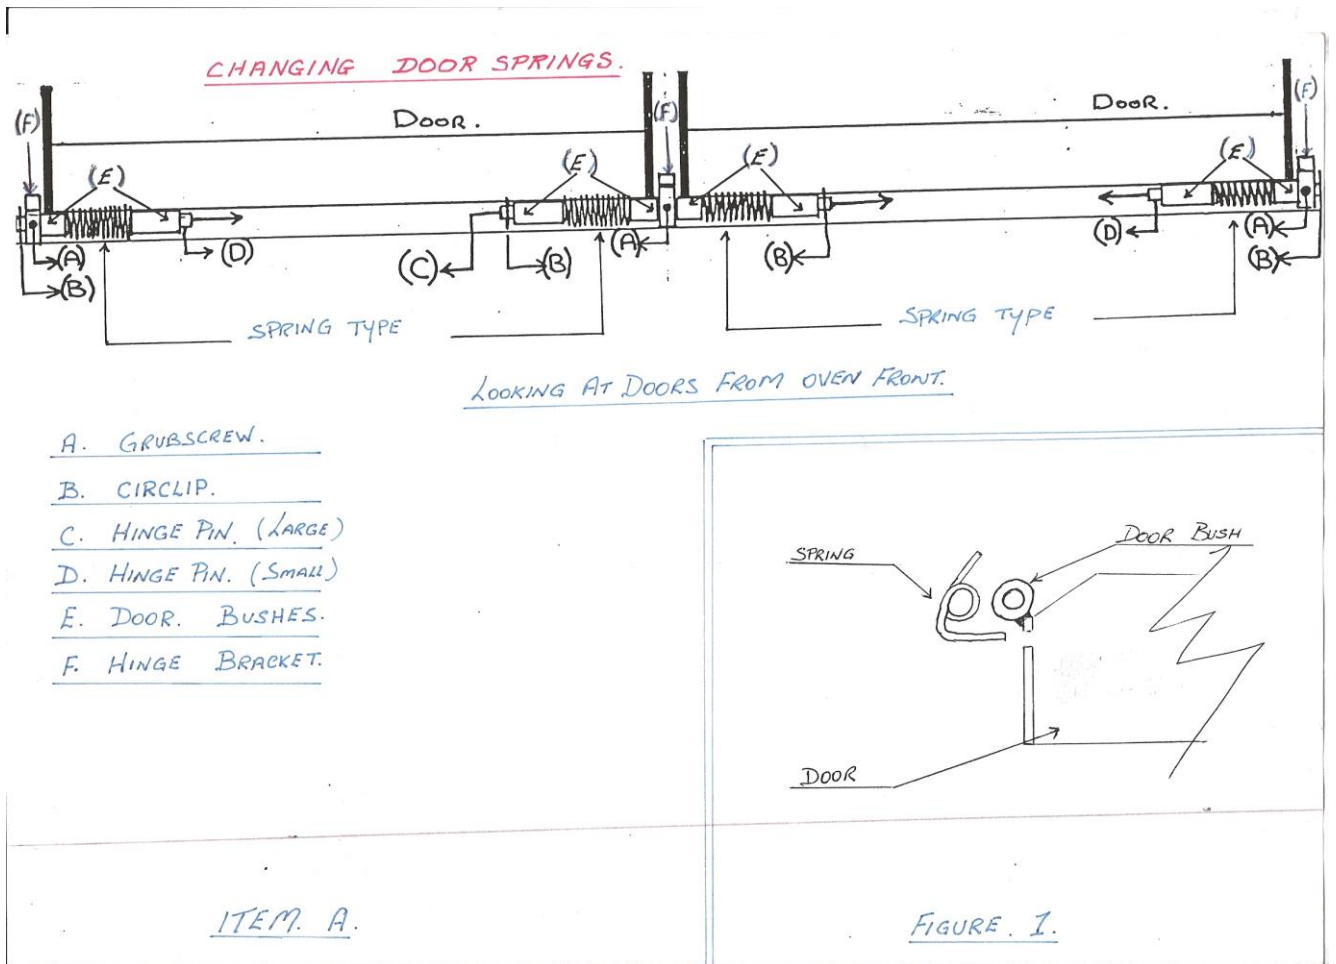 CHANGING DOOR SPRINGS.
DOOR.
DOOR.
(F)
(F)
(F)
(E)
(E)
(E)
(E)
(A)
(B)
(D)
(C)
(B)
(A)
(B)
(D)
(A)
(B)
SPRING TYPE
SPRING TYPE
LOOKING AT DOORS FROM OVEN FRONT.
A. GRUBSCREW.
B. CIRCLIP.
C. HINGE PIN. (LARGE)
D. HINGE PIN. (SMALL)
E. DOOR. BUSHES.
F. HINGE BRACKET.
SPRING
DOOR BUSH
DOOR
ITEM. A.
FIGURE. 1.